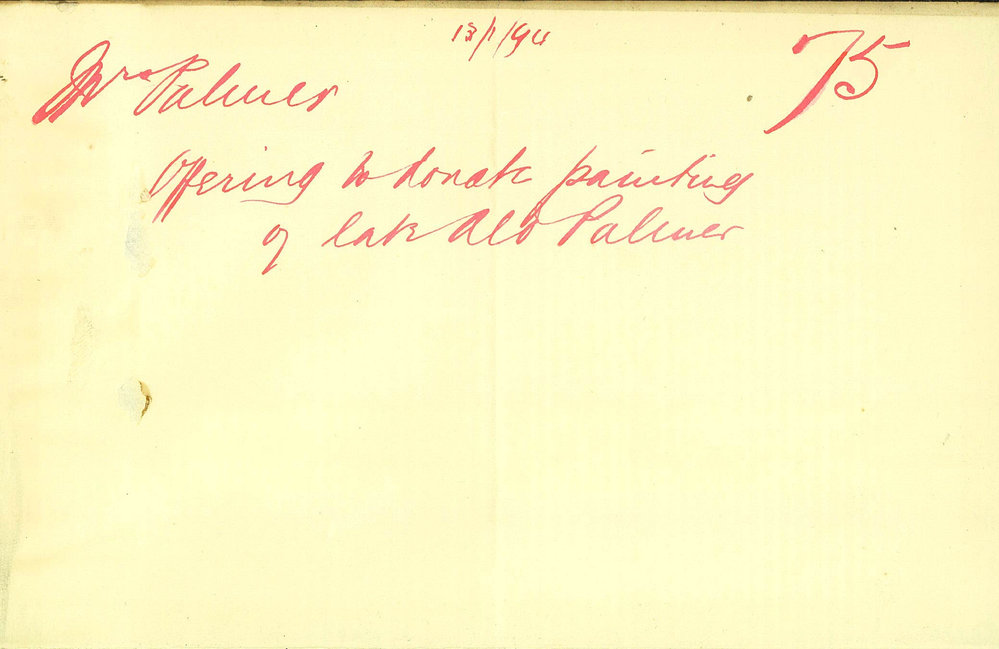 13/1/94
75
Mrs Palmer
Offering to donate painting
of late Ald Palmer